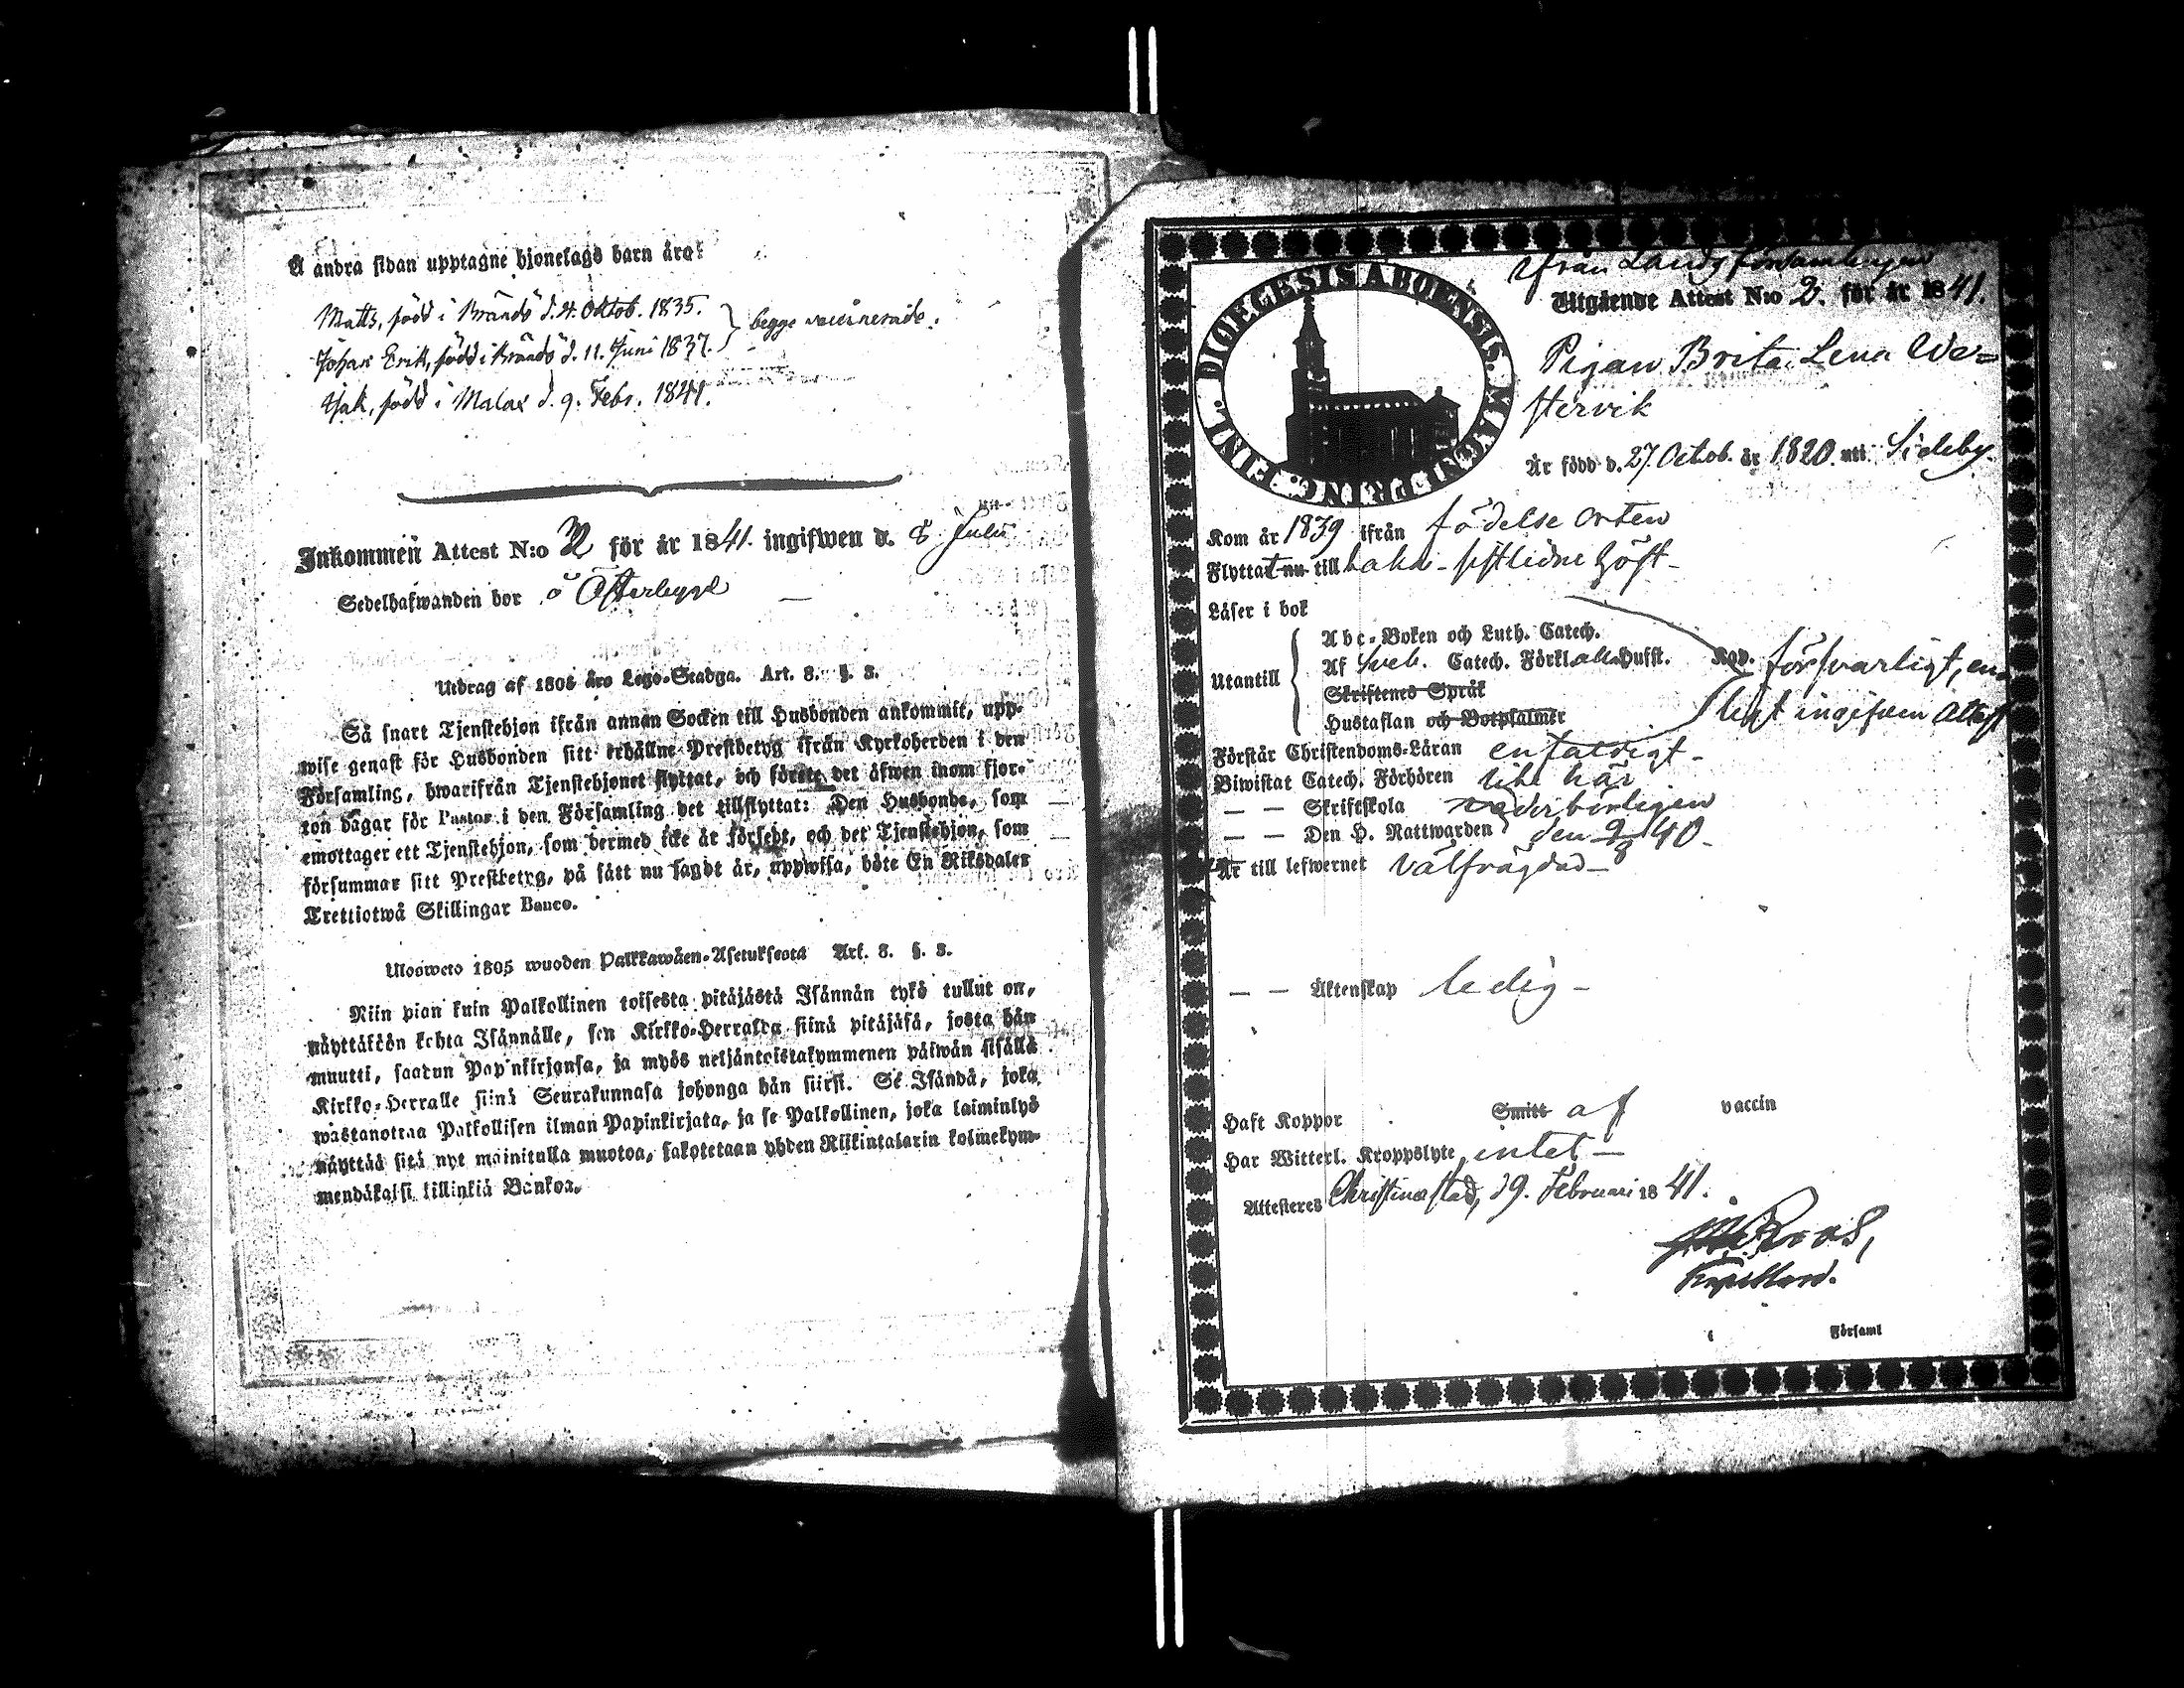 Å andra sidan upptagne hjonelags barn äro:
Matts, född i Brändö d. 4. Oktob. 1835.
Johan Erik, född i Brändö d. 11. Juni 1837.
begge vaccinerade.
Isak, född i Malax d. 9. Febr. 1841.
Inkommen Attest N:o 32 för år 1841. ingifwen d. 8 Julii
Sedelhafwanden bor i Österbygd
Utdrag af 1805 års Lego-Stadga. Art. 8. §. 3.
Så snart Tjenstehjon ifrån annan Socken till Husbonden ankommit, upp-
wise genast för Husbonden sitt erhållne Prestbetyg ifrån Kyrkoherden i den
Församling, hwarifrån Tjenstehjonet flyttat, och förete det äfwen inom fjor-
ton dagar för Pastor i den Församling det tillflyttat: Den Husbonde, som
emottager ett Tjenstehjon, som dermed icke är försedt, och det Tjenstehjon, som
försummar sitt Prestbetyg, på sätt nu sagdt är, uppwisa, böte En Riksdaler
Trettiotwå Skillingar Banco.
Ulosweto 1805 wuoden Palkkawäen-Asetuksesta Art. 8. §. 3.
Niin pian kuin Palkollinen toisesta pitäjästä Isännän tykö tullut on,
näyttäköön kohta Isännälle, sen Kirkko-Herralda siinä pitäjäsä, josta hän
muutti, saadun Papinkirjansa, ja myös neljäntoistakymmenen päiwän sisällä
Kirkko-Herralle siinä Seurakunnasa johonga hän siirsi. Se Isändä, joka
wastanottaa Palkollisen ilman Papinkirjata, ja se Palkollinen, joka laiminlyö
näyttää sitä nyt mainitulla muotoa, sakotetaan yhden Riikintalarin kolmekym-
mendäkaksi killinkiä Bankoa.
DIOECESIS ABOENSIS. MAGNI PRINC. FINL.
Ifrån Landsförsamlingen
Utgående Attest N:o 2. för år 1841.
Pigan Brita Lena We=
stervik
Är född d. 27. Octob. år 1820. uti Sideby.
Kom år 1839 ifrån födelse orten
Flyttat nu till sistledne höst
Läser i bok
Utantill
Abc-Boken och Luth. Catech.
Af Sveb. Catech. Förkl. Hufst. Kap.
Skriftenes Språk
Hustaflan och Botpsalmer
försvarligt, en
ligt ingifven Attest
Förstår Christendoms-Läran enfaldigt
Biwistat Catech. Förhören här
— — Skriftskola vederbörligen
— — Den H. Nattwarden den 9/8 40
Är till lefwernet välfrägdad
— — Äktenskap ledig
Haft Koppor Smitt af vaccin
Har Witterl. Kroppslyte intet
Attesteres Christinestad, 19. Februari 1841.
Roos,
Kapellan.
i Församl